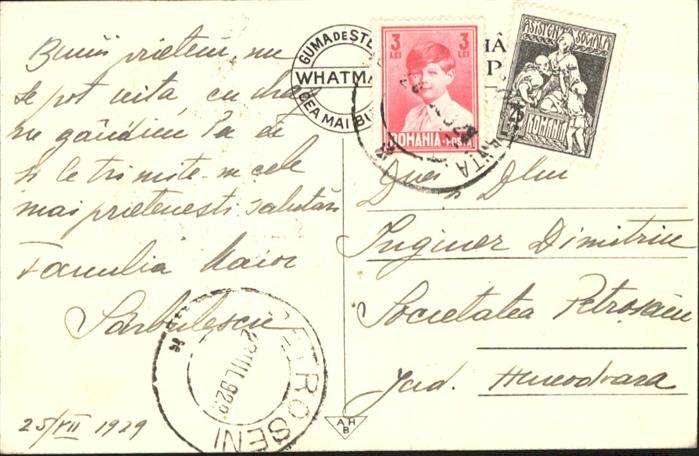 Bunii prieteni, nu
se pot uita, cu drag
ne gândim la ei
și le trimitem cele
mai prietenești salutări
Familia Maior
Sărbulescu
25/VII 1929
GUMA DE ȘTE
WHATMA
CEA MAI BU
3 LEI
3 LEI
ROMANIA · POSTA
ASISTENTA SOCIALA
ROMANIA
PETROSENI
Dnei și Dlui
Inginer Dimitriu
Societatea Petroșani
Jud. Hunedoara
A H
B